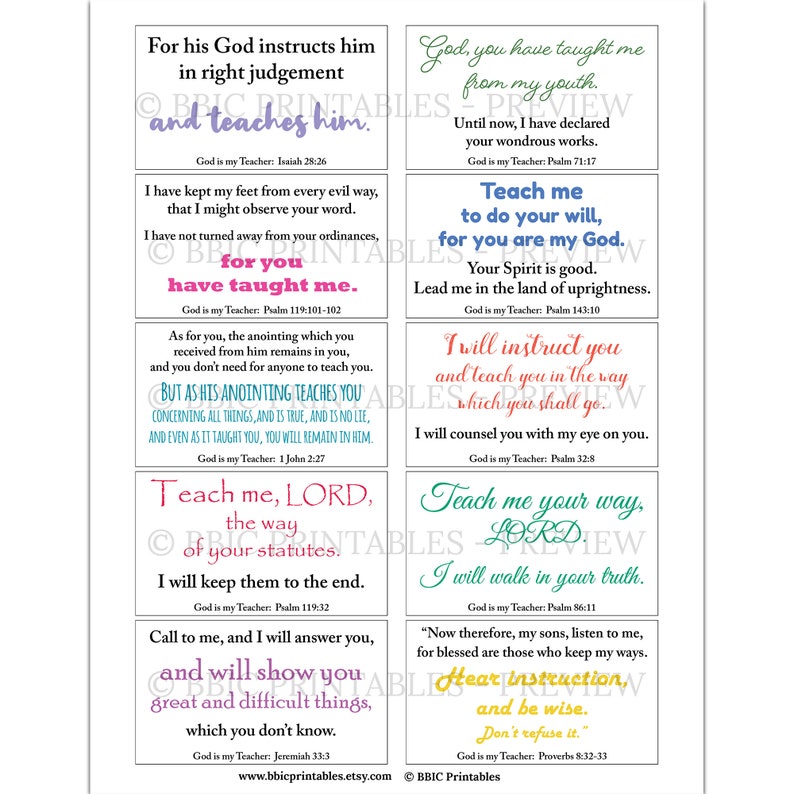 For his God instructs him
in right judgement
and teaches him.
God is my Teacher: Isaiah 28:26
God, you have taught me
from my youth.
Until now, I have declared
your wondrous works.
God is my Teacher: Psalm 71:17
© BBIC PRINTABLES - PREVIEW
I have kept my feet from every evil way,
that I might observe your word.
I have not turned away from your ordinances,
for you
have taught me.
God is my Teacher: Psalm 119:101-102
Teach me
to do your will,
for you are my God.
Your Spirit is good.
Lead me in the land of uprightness.
God is my Teacher: Psalm 143:10
© BBIC PRINTABLES - PREVIEW
As for you, the anointing which you
received from him remains in you,
and you don't need for anyone to teach you.
But as his anointing teaches you
concerning all things, and is true, and is no lie,
and even as it taught you, you will remain in him.
God is my Teacher: 1 John 2:27
I will instruct you
and teach you in the way
which you shall go.
I will counsel you with my eye on you.
God is my Teacher: Psalm 32:8
© BBIC PRINTABLES - PREVIEW
Teach me, LORD,
the way
of your statutes.
I will keep them to the end.
God is my Teacher: Psalm 119:32
Teach me your way,
LORD.
I will walk in your truth.
God is my Teacher: Psalm 86:11
© BBIC PRINTABLES - PREVIEW
Call to me, and I will answer you,
and will show you
great and difficult things,
which you don't know.
God is my Teacher: Jeremiah 33:3
“Now therefore, my sons, listen to me,
for blessed are those who keep my ways.
Hear instruction,
and be wise.
Don't refuse it.”
God is my Teacher: Proverbs 8:32-33
© BBIC PRINTABLES - PREVIEW
www.bbicprintables.etsy.com © BBIC Printables